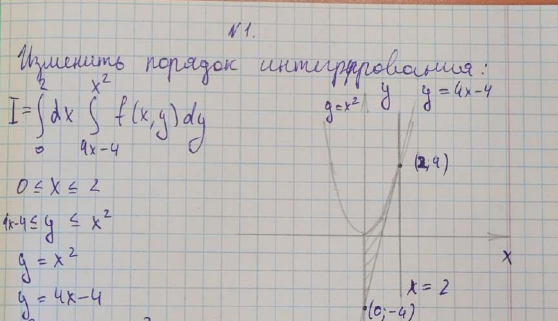 №1.
Изменить порядок интегрирования:
I = ∫₀² dx ∫_{4x-4}^{x²} f(x,y)dy
y=x² y y=4x-4
0 ≤ x ≤ 2
(2,4)
4x-4 ≤ y ≤ x²
y = x²
x
x = 2
y = 4x-4
(0;-4)